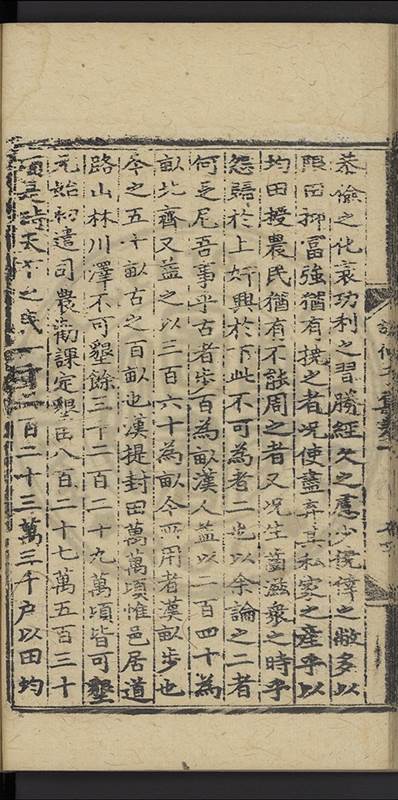 恭儉之化衰功利之習勝經久之慮少僥倖之敝多以
限田抑富強猶有撓之者况使盡弃其私家之產乎以
均田授農民猶有不能周之者又况生齒滋衆之時乎
怨歸於上奸興於下此不可為者二也以余論之二者
何足尼吾事乎古者步百為畝漢人益以二百四十為
畝北齊又益之以三百六十為畝今所用者漢畝步也
今之五十畝古之百畝也漢提封田萬萬頃惟邑居道
路山林川澤不可墾餘三千二百二十九萬頃皆可墾
元始初遣司農勸課定墾田八百二十七萬五百三十
頃是時天下之民一千二百二十三萬三千户以田均